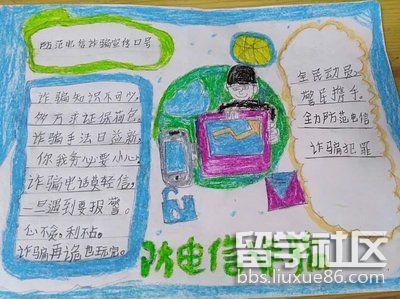 防范电信诈骗宣传口号
诈骗知识不可少,
多方求证保荷包。
诈骗手法日益新,
你我务必要小心。
诈骗电话莫轻信,
一旦遇到要报警。
心不贪,利不占。
诈骗再诡也玩完。
全民动员,
警民携手。
全力防范电信
诈骗犯罪
防电信
留学社区
bbs.liuxue86.com